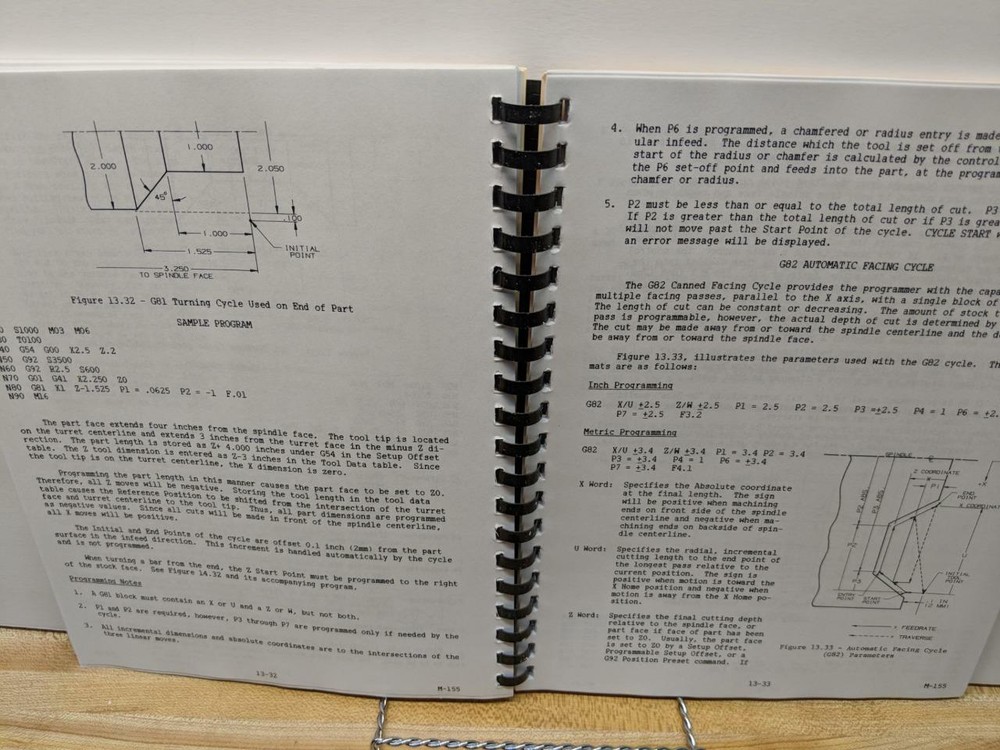 2.000
1.000
2.050
45°
.100
1.000
1.525
INITIAL
POINT
3.250
TO SPINDLE FACE
Figure 13.32 - G81 Turning Cycle Used on End of Part
SAMPLE PROGRAM
S1000 M03 M06
T0100
40 G54 G00 X2.5 Z.2
N50 G92 S3500
N60 G92 R2.5 S600
N70 G01 G41 X2.250 Z0
N80 G81 X1 Z-1.525 P1 = .0625 P2 = -1 F.01
N90 M16
The part face extends four inches from the spindle face. The tool tip is located
on the turret centerline and extends 3 inches from the turret face in the minus Z di-
rection. The part length is stored as Z+ 4.000 inches under G54 in the Setup Offset
table. The Z tool dimension is entered as Z-3 inches in the Tool Data table. Since
the tool tip is on the turret centerline, the X dimension is zero.
Programming the part length in this manner causes the part face to be set to Z0.
Therefore, all Z moves will be negative. Storing the tool length in the tool data
table causes the Reference Position to be shifted from the intersection of the turret
face and turret centerline to the tool tip. Thus, all part dimensions are programmed
as negative values. Since all cuts will be made in front of the spindle centerline,
all X moves will be positive.
The Initial and End Points of the cycle are offset 0.1 inch (2mm) from the part
surface in the infeed direction. This increment is handled automatically by the cycle
and is not programmed.
When turning a bar from the end, the Z Start Point must be programmed to the right
of the stock face. See Figure 14.32 and its accompanying program.
Programming Notes
1. A G81 block must contain an X or U and a Z or W, but not both.
2. P1 and P2 are required, however, P3 through P7 are programmed only if needed by the
cycle.
3. All incremental dimensions and absolute coordinates are to the intersections of the
three linear moves.
13-32
M-155
4. When P6 is programmed, a chamfered or radius entry is made
ular infeed. The distance which the tool is set off from
start of the radius or chamfer is calculated by the control
the P6 set-off point and feeds into the part, at the program
chamfer or radius.
5. P2 must be less than or equal to the total length of cut. P3
If P2 is greater than the total length of cut or if P3 is grea
will not move past the Start Point of the cycle. CYCLE START
an error message will be displayed.
G82 AUTOMATIC FACING CYCLE
The G82 Canned Facing Cycle provides the programmer with the capa
multiple facing passes, parallel to the X axis, with a single block of
The length of cut can be constant or decreasing. The amount of stock t
pass is programmable, however, the actual depth of cut is determined by
The cut may be made away from or toward the spindle centerline and the d
be away from or toward the spindle face.
Figure 13.33, illustrates the parameters used with the G82 cycle. Th
mats are as follows:
Inch Programming
G82 X/U ±2.5 Z/W ±2.5 P1 = 2.5 P2 = 2.5 P3 =±2.5 P4 = 1 P6 = ±2.
P7 = ±2.5 F3.2
Metric Programming
G82 X/U ±3.4 Z/W ±3.4 P1 = 3.4 P2 = 3.4
P3 = ±3.4 P4 = 1 P6 = ±3.4
P7 = ±3.4 F4.1
X Word: Specifies the Absolute coordinate
at the final length. The sign
will be positive when machining
ends on front side of the spindle
centerline and negative when ma-
chining ends on backside of spin-
dle centerline.
U Word: Specifies the radial, incremental
cutting length to the end point of
the longest pass relative to the
current position. The sign is
positive when motion is toward the
X Home position and negative when
motion is away from the X Home po-
sition.
Z Word: Specifies the final cutting depth
relative to the spindle face, or
part face if face of part has been
set to Z0. Usually, the part face
is set to Z0 by a Setup Offset,
Programmable Setup Offset, or a
G92 Position Preset command. If
SPINDLE
Z COORDINATE
P1
END
POINT
X COORDINA
P3
ENTRY
POINT
START
POINT
INITIAL
TOOL
POINT
.1 IN
(2 MM)
= FEEDRATE
= TRAVERSE
Figure 13.33 - Automatic Facing Cycle
(G82) Parameters
13-33
M-155